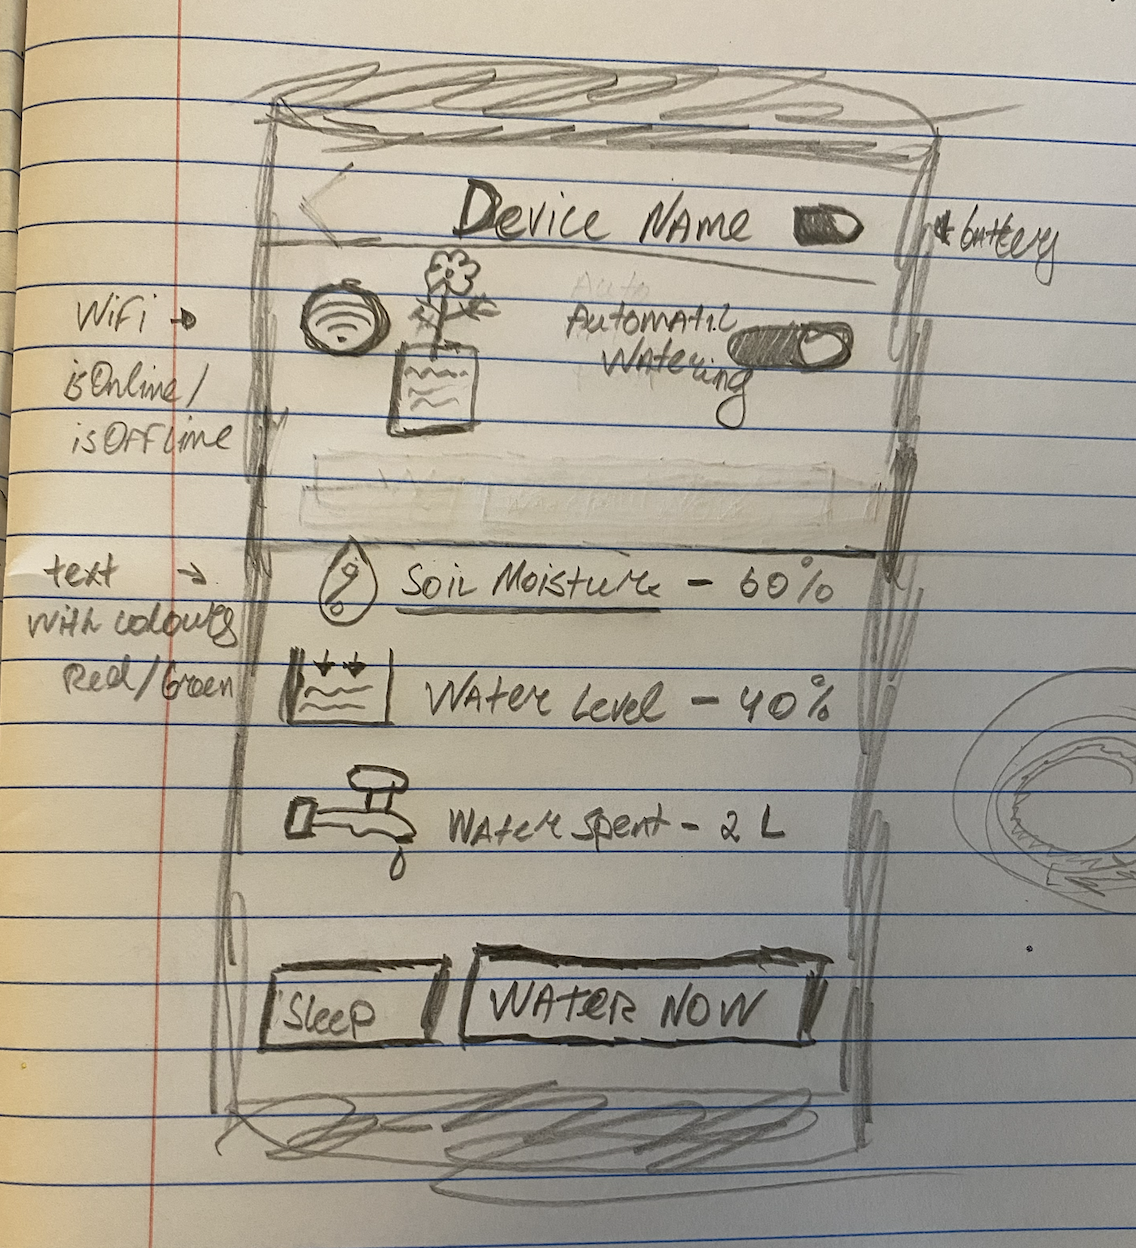 Device Name
battery
Wifi
isOnline/
isOffline
Auto
Automatic
Watering
text
with colours
Red/Green
Soil Moisture - 60%
Water Level - 40%
Water Spent - 2 L
Sleep
WATER NOW